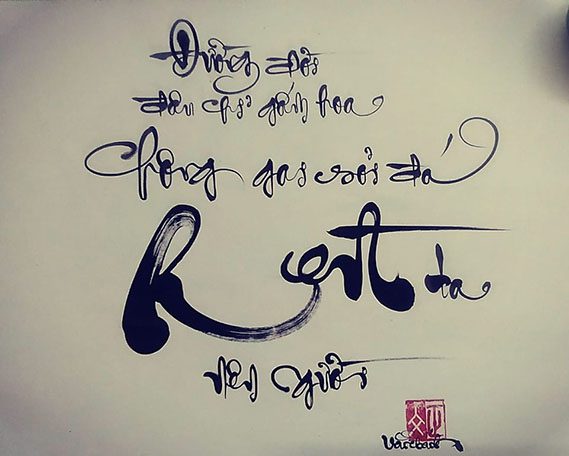 Đường đời
đâu chỉ gấm hoa
Chông gai sỏi đá
da
nên người